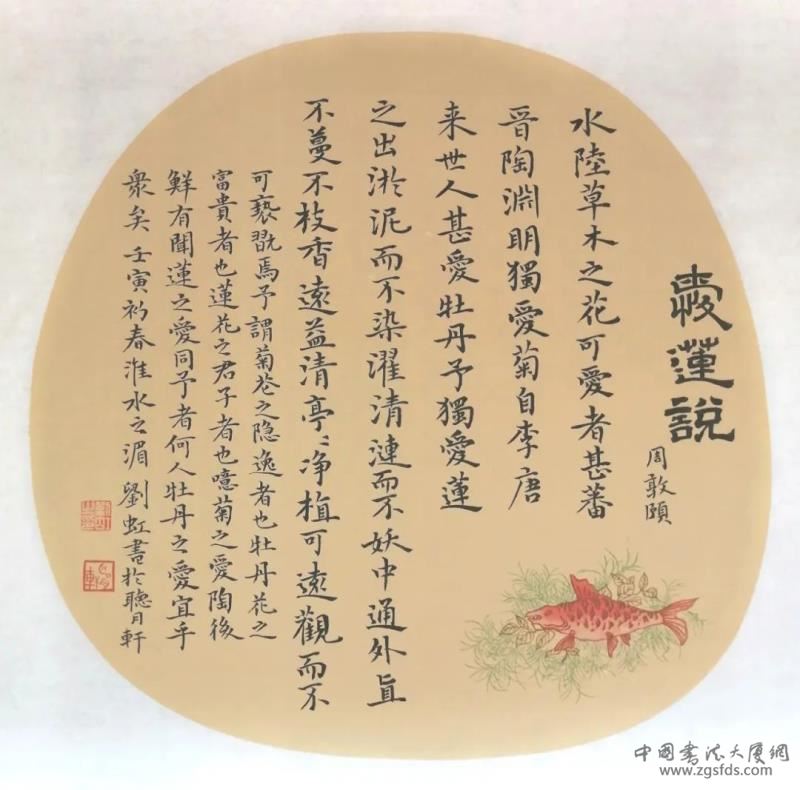 愛蓮說
周敦頤
水陸草木之花可愛者甚蕃
晉陶淵明獨愛菊自李唐
来世人甚愛牡丹予獨愛蓮
之出淤泥而不染濯清漣而不妖中通外直
不蔓不枝香遠益清亭〻净植可遠觀而不
可褻翫焉予謂菊花之隐逸者也牡丹花之
富貴者也蓮花之君子者也噫菊之愛陶後
鮮有聞蓮之愛同予者何人牡丹之愛宜乎
衆矣 壬寅初春淮水之湄劉虹書於聽月軒
中國書法大厦網
www.zgsfds.com